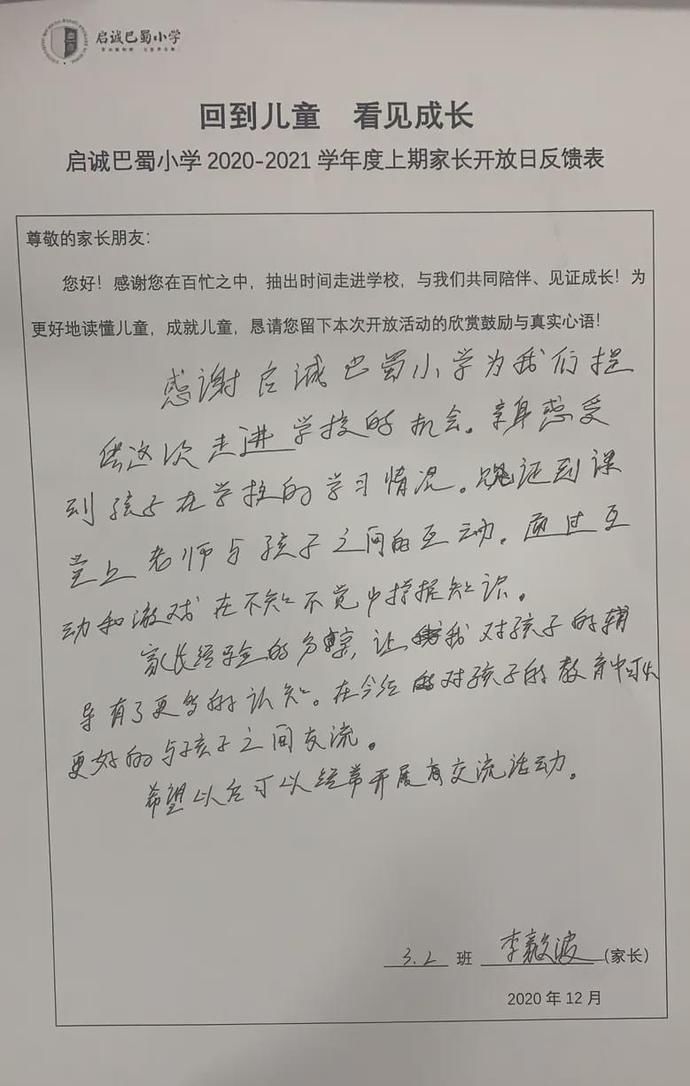 启诚巴蜀小学
回到儿童 看见成长
启诚巴蜀小学2020-2021学年度上期家长开放日反馈表
尊敬的家长朋友：
您好！感谢您在百忙之中，抽出时间走进学校，与我们共同陪伴、见证成长！为
更好地读懂儿童，成就儿童，恳请您留下本次开放活动的欣赏鼓励与真实心语！
感谢启诚巴蜀小学为我们提
供这次走进学校的机会。亲身感受
到孩子在学校的学习情况。见证到课
堂上老师与孩子之间的互动。通过互
动和游戏在不知不觉中掌握知识。
家长经验的分享，让我对孩子的辅
导有了更多的认知。在今后对孩子的教育中可以
更好的与孩子之间交流。
希望以后可以经常开展交流活动。
3.2 班 李毅波 (家长)
2020年12月